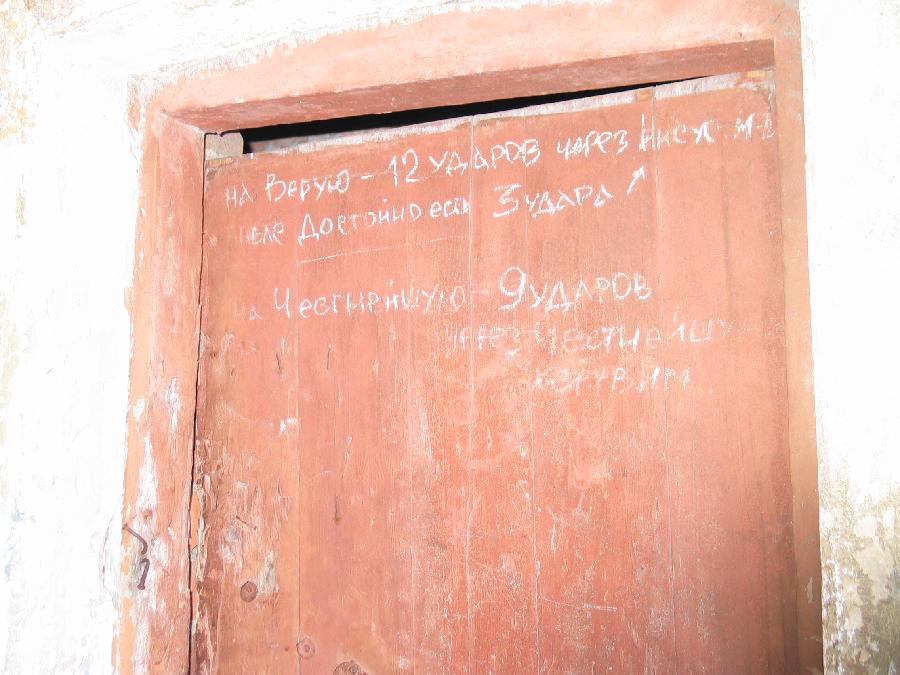 на Верую - 12 ударов через
после Достойно есть 3 удара
на Честнейшую - 9 ударов
через Честнейшу